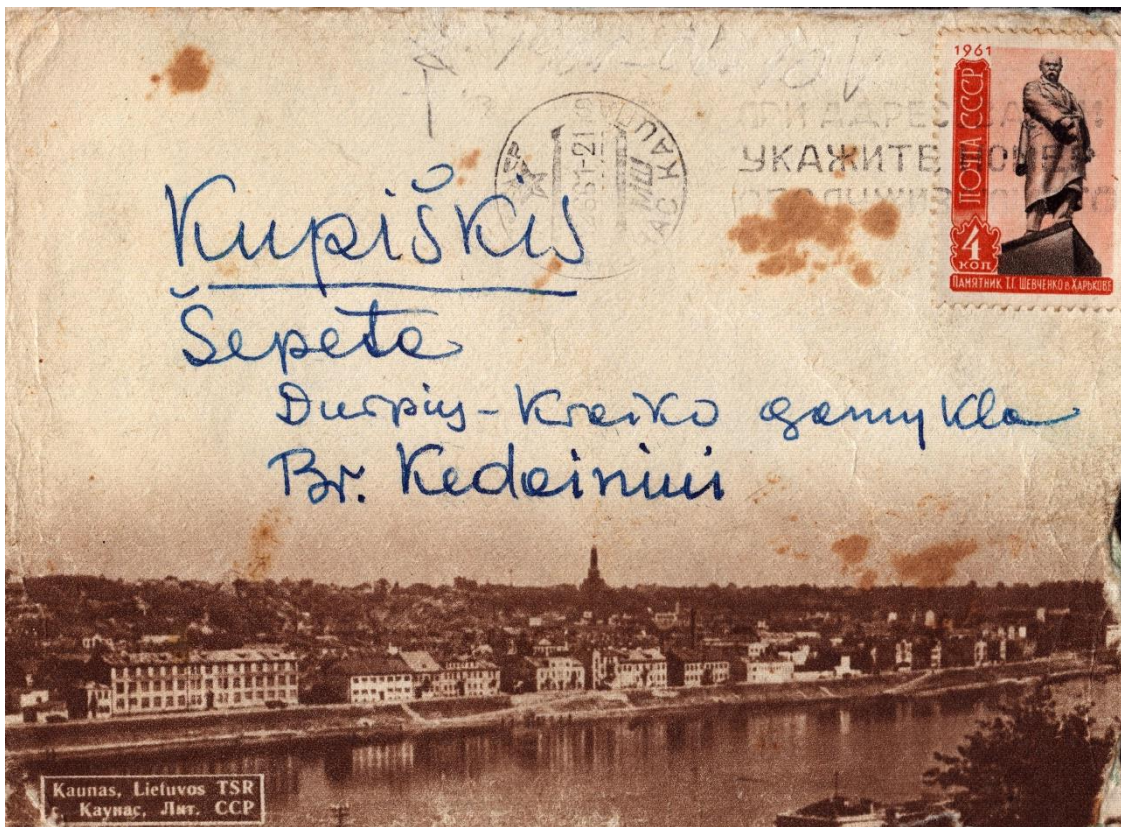 1961
ПОЧТА СССР
4
КОП
ПАМЯТНИК Т.Г. ШЕВЧЕНКО в ХАРЬКОВЕ
УКАЖИТЕ
Kupiškis
Šepeta
Durpių-Kraiko gamykla
Br. Kedainiui
Kaunas, Lietuvos TSR
г. Каунас, Лит. ССР